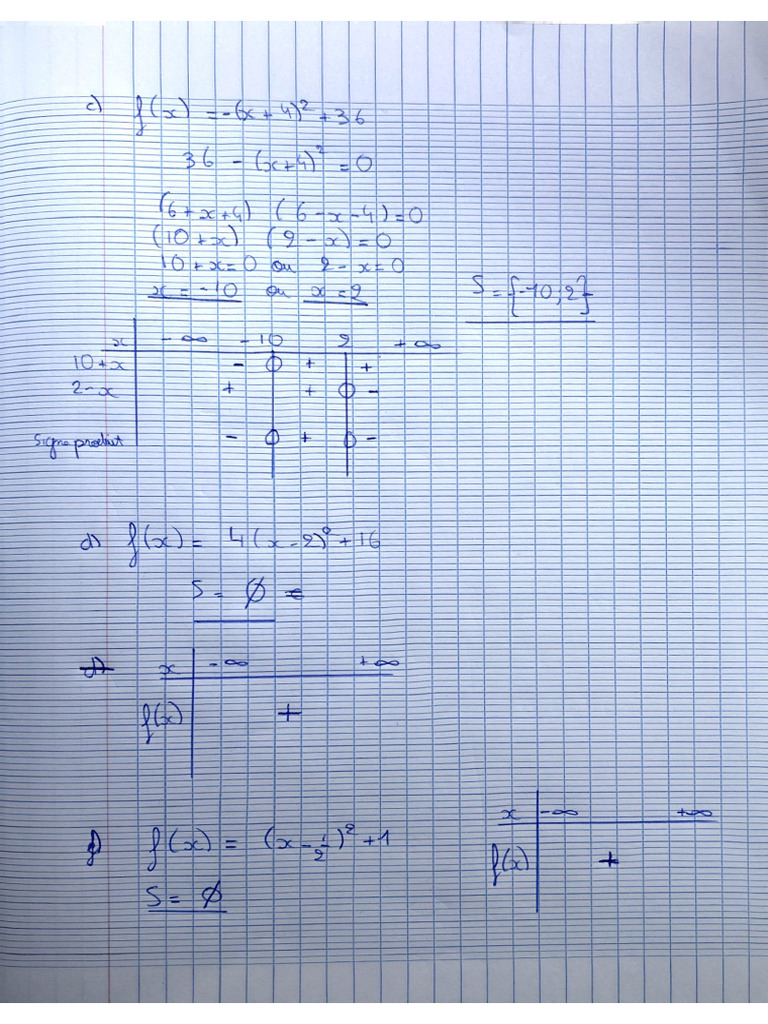 c) f(x) = -(x+4)² + 36
36 - (x+4)² = 0
(6+x+4) (6-x-4) = 0
(10+x) (2-x) = 0
10+x=0 ou 2-x=0
x = -10 ou x = 2
S = {-10; 2}
x -∞ -10 2 +∞
10+x - 0 + +
2-x + + 0 -
Signe produit - 0 + 0 -
d) f(x) = 4(x-2)² + 16
S = ∅
x -∞ +∞
f(x) +
f) f(x) = (x - 1/2)² + 1
S = ∅
x -∞ +∞
f(x) +